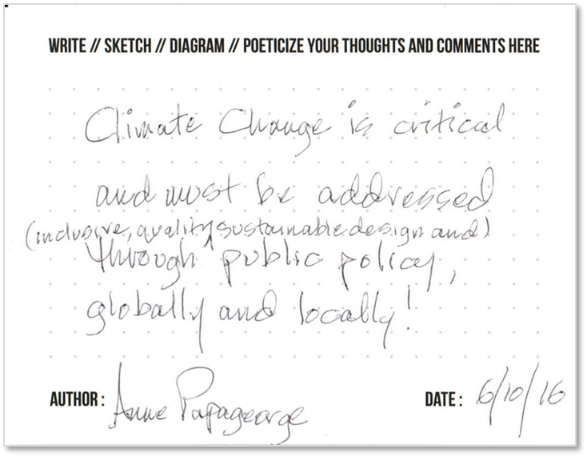 WRITE // SKETCH // DIAGRAM // POETICIZE YOUR THOUGHTS AND COMMENTS HERE
Climate Change is critical
and must be addressed
(inclusive, quality, sustainable design and)
through ^ public policy,
globally and locally!
AUTHOR: Anne Papageorge DATE: 6/10/16